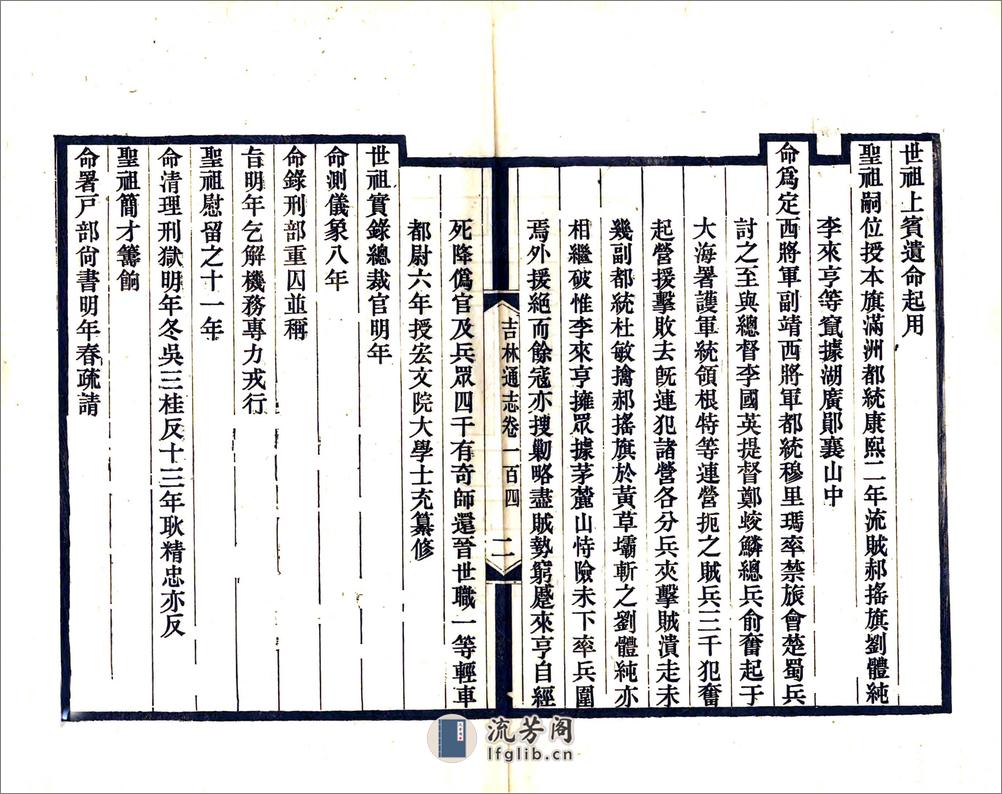 世祖上賓遺命起用
聖祖嗣位授本旗滿洲都統康熙二年流賊郝搖旗劉體純
李來亨等竄據湖廣鄖襄山中
命爲定西將軍副靖西將軍都統穆里瑪率禁旅會楚蜀兵
討之至與總督李國英提督鄭蛟鱗總兵俞奮起于
大海署護軍統領根特等連營扼之賊兵三千犯奮
起營援擊敗去旣連犯諸營各分兵夾擊賊潰走未
幾副都統杜敏擒郝搖旗於黃草壩斬之劉體純亦
相繼破惟李來亨擁眾據茅麓山恃險未下率兵圍
焉外援絕而餘寇亦搜勦略盡賊勢窮蹙來亨自經
吉林通志卷一百四
二
死降僞官及兵眾四千有奇師還晉世職一等輕車
都尉六年授宏文院大學士充纂修
世祖實錄總裁官明年
命測儀象八年
命錄刑部重囚並稱
旨明年乞解機務專力戎行
聖祖慰留之十一年
命清理刑獄明年冬吳三桂反十三年耿精忠亦反
聖祖簡才籌餉
命署戸部尙書明年春疏請
流芳阁
lfglib.cn